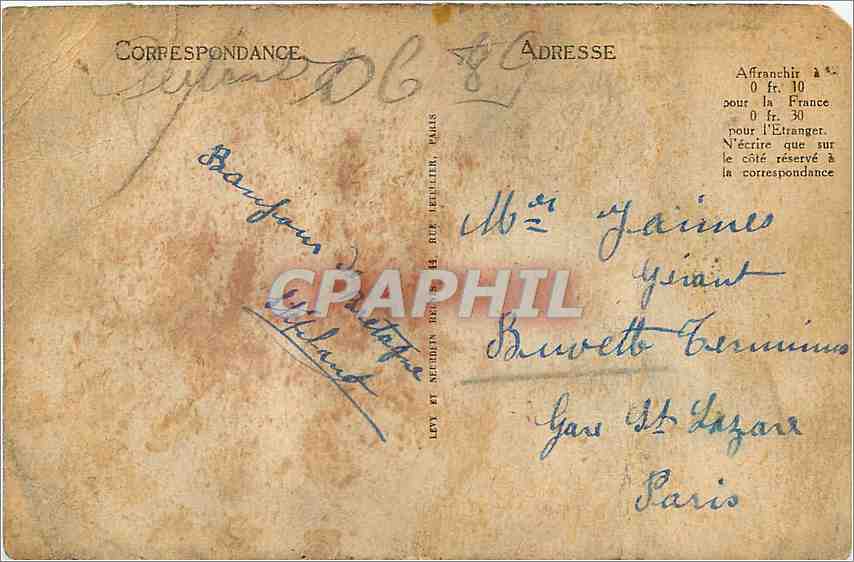 CORRESPONDANCE
ADRESSE
D6 89
Affranchir à
0 fr. 10
pour la France
0 fr. 30
pour l'Etranger.
N'écrire que sur
le côté réservé à
la correspondance
Bonjour de Bretagne
LÉVY ET NEURDEIN RÉUNIS, 44 RUE LETELLIER, PARIS
CPAPHIL
Jaimes
Gérant
Buvette Terminus
Gare St Lazare
Paris